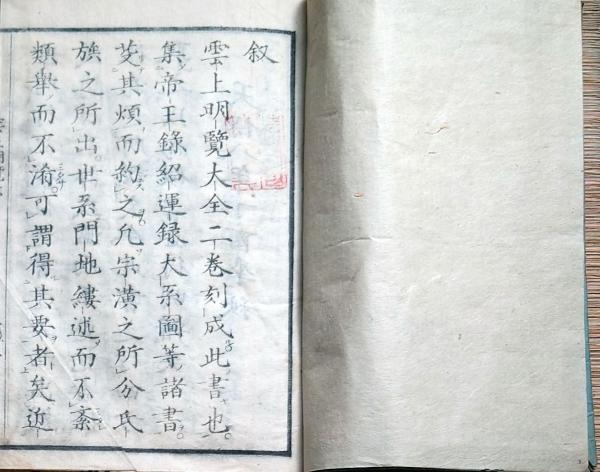 叙
雲上明覽大全二卷刻成此書也
集帝王錄紹運録大系圖等諸書
芟其煩而約之凡宗潢之所分氏
族之所出世系門地縷述而不紊
類舉而不淆可謂得其要者矣近